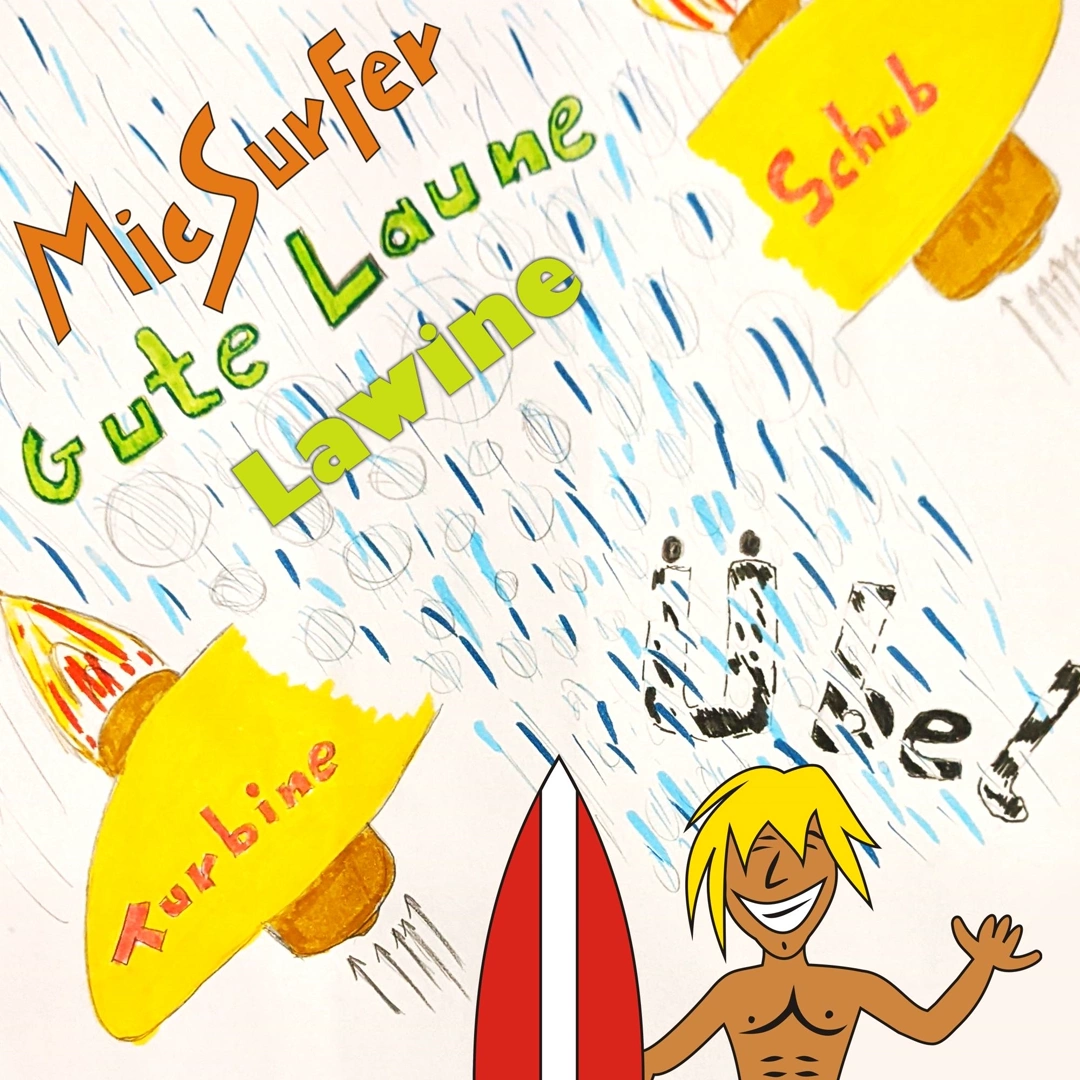 MicSurfer
Gute Laune
Lawine
Schub
Übe!
Turbine